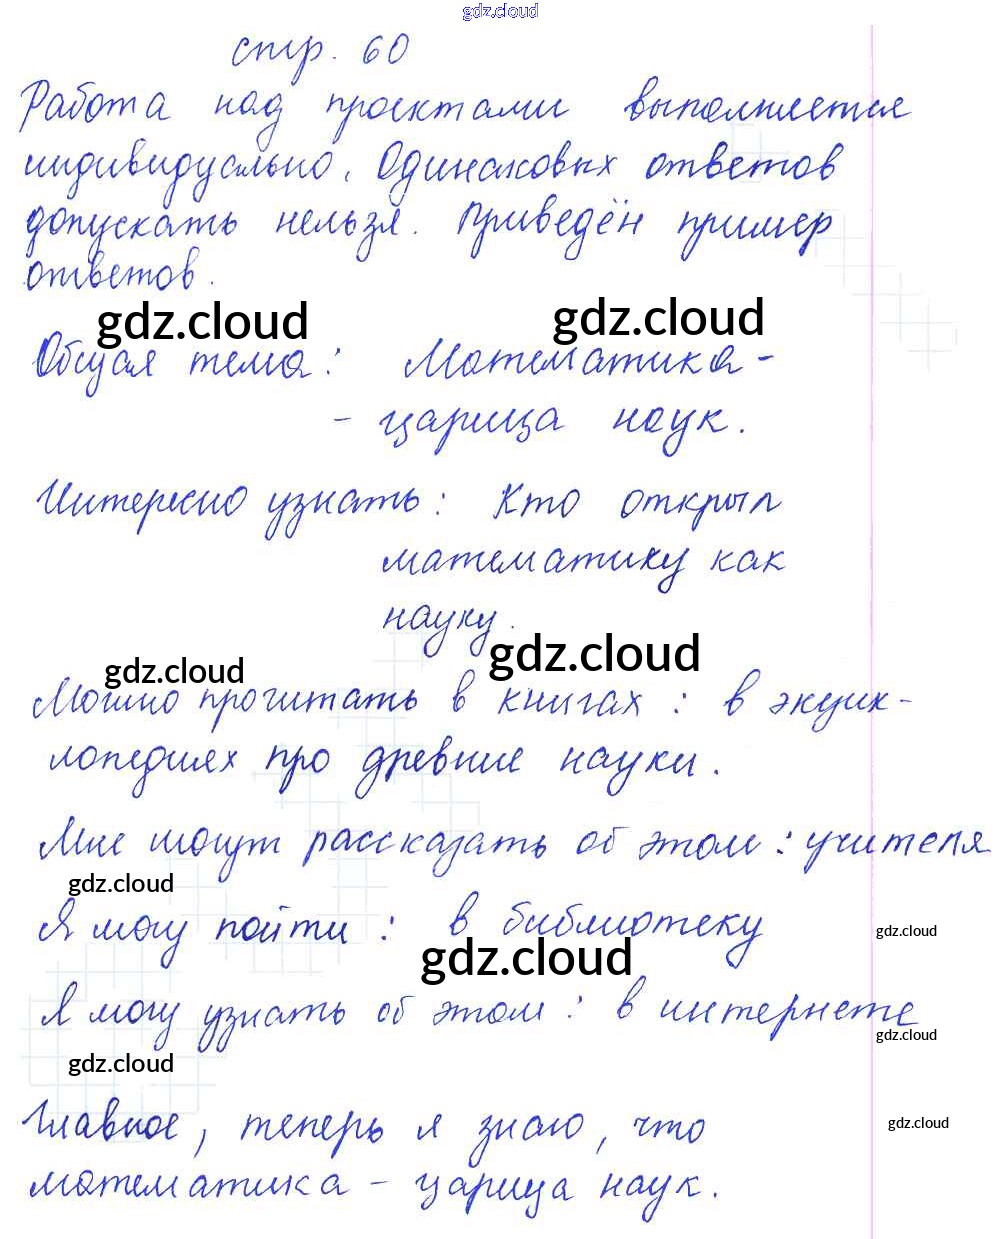 gdz.cloud
стр. 60
Работа над проектами выполняется
индивидуально. Одинаковых ответов
допускать нельзя. Приведён пример
ответов.
gdz.cloud gdz.cloud
Общая тема: Математика-
- царица наук.
Интересно узнать: Кто открыл
математику как
науку.
gdz.cloud gdz.cloud
Можно прочитать в книгах: в энцик-
лопедиях про древние науки.
Мне могут рассказать об этом: учителя
gdz.cloud
Я могу пойти: в библиотеку
gdz.cloud gdz.cloud
Я могу узнать об этом: в интернете
gdz.cloud gdz.cloud
Главное, теперь я знаю, что
gdz.cloud
математика - царица наук.